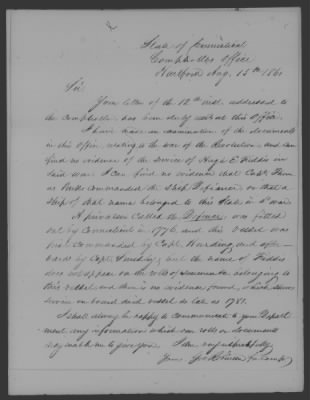 State of Connecticut
Comptrollers Office
Hartford Aug. 15th 1860
Sir
Your letter of the 12th inst. addressed to
the Comptroller has been duly recd at this Office.
I have made an examination of the documents
in this Office, relating to the war of the Revolution, and can
find no evidence of the service of Hugh E. Fiddis in
said war. I can find no evidence that Capt.
commanded the Ship Defiance, or that a
ship of that name belonged to this State in sd war.
A privateer called the Defence, was fitted
out by Connecticut in 1776, and this vessel was
first commanded by Capt. Harding, and after-
wards by Capt. Smedley; but the name of Fiddis
does not appear on the rolls of seamen belonging to
this vessel, and there is no evidence found, which shows
service on board said vessel so late as 1781.
I shall always be happy to communicate to your Depart
ment any information which our rolls or documents
may enable me to give you. I am very respectfully
Yours